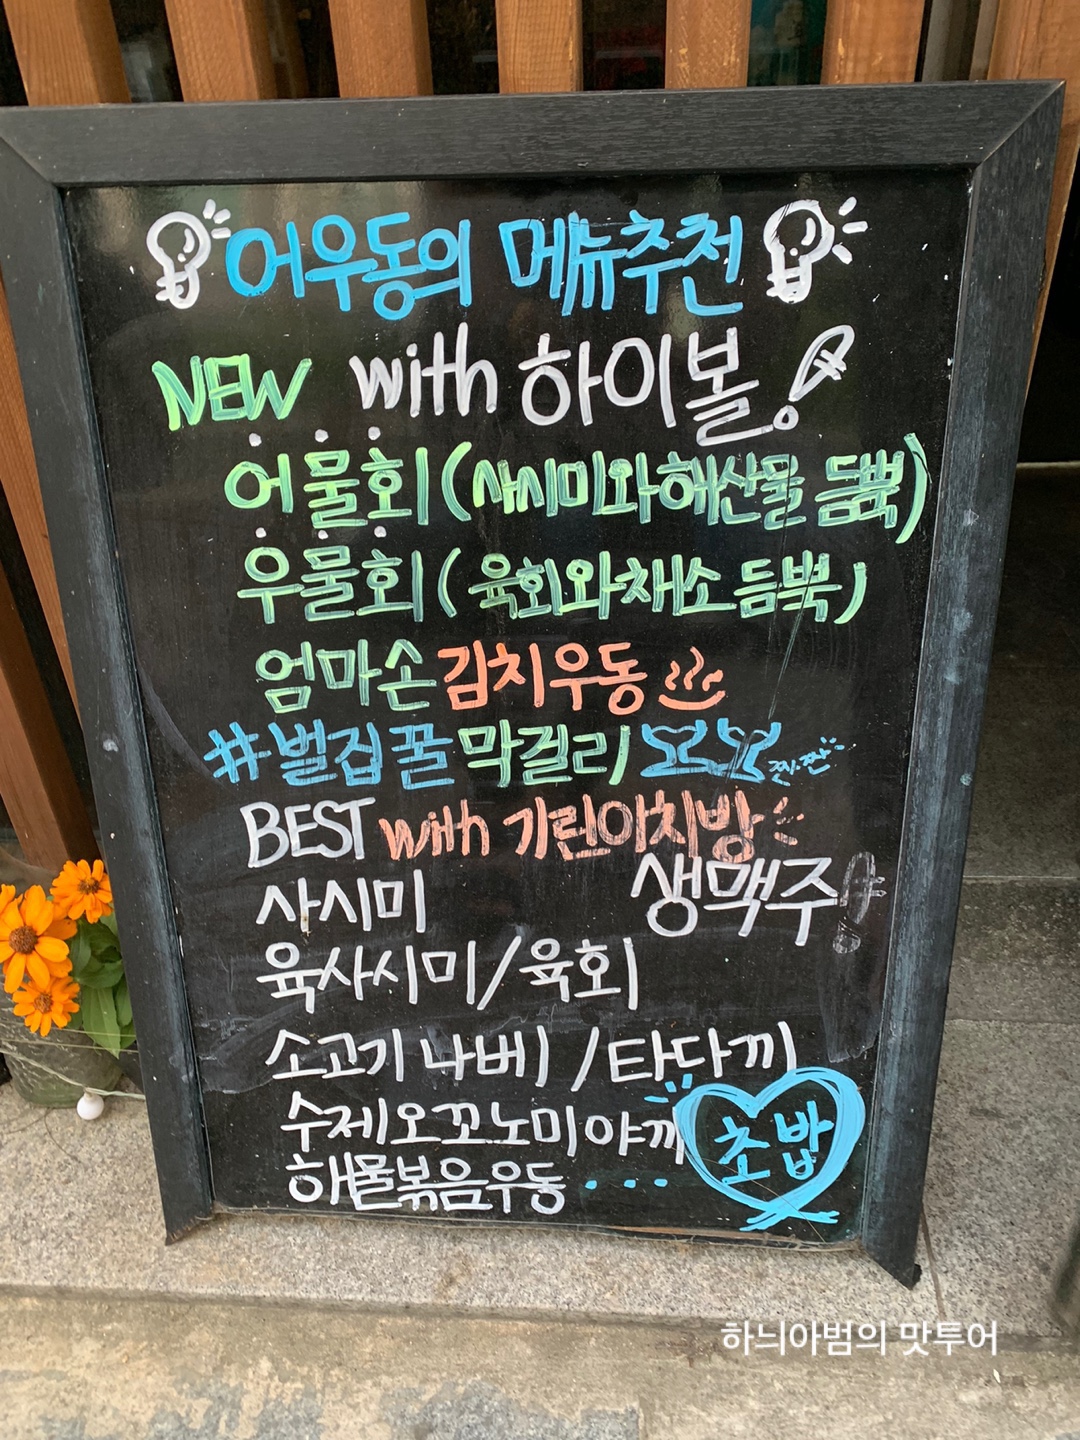 어우동의 메뉴추천
NEW with 하이볼!
어물회(사시미와해산물 듬뿍)
우물회(육회와채소 듬뿍)
엄마손김치우동
#벌집꿀막걸리 짠.짠
BEST with 기린이치방
사시미 생맥주!
육사시미/육회
소고기 나베 / 타다끼
수제오꼬노미야끼
해물볶음우동 ...
초밥
하늬아범의 맛투어